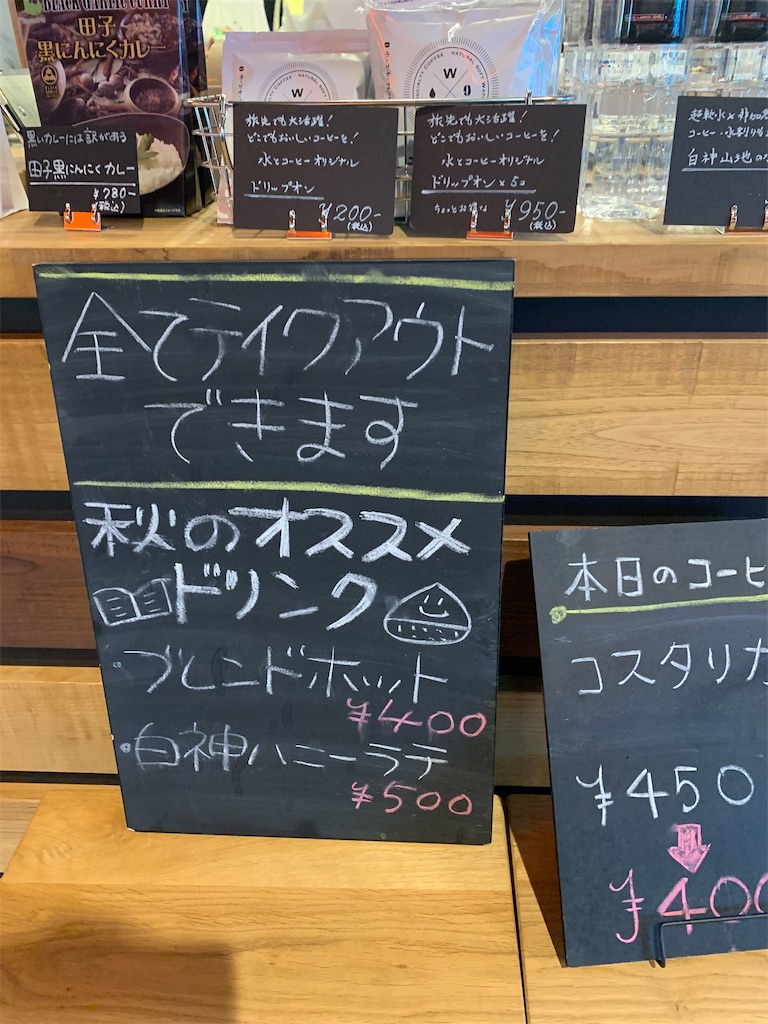 BLACK GARLIC CURRY
田子
黒にんにくカレー
黒いカレーには訳がある
田子黒にんにくカレー
¥780-
(税込)
SPECIALTY COFFEE
NATURAL SOFT WATER
W
旅先でも大活躍!
どこでもおいしいコーヒーを!
水とコーヒーオリジナル
ドリップオン
¥200-
(税込)
旅先でも大活躍!
どこでもおいしいコーヒーを!
水とコーヒーオリジナル
ドリップオン×5コ
ちょっとお得な ¥950-
(税込)
超軟水×非加熱
コーヒー・水割りも
白神山地の
全てテイクアウト
できます
秋のオススメ
ドリンク
・ブレンドホット
¥400
・白神ハニーラテ
¥500
本日のコーヒ
コスタリカ
¥450
¥400